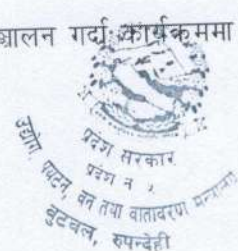 ञ्चालन गर्दा कार्यक्रममा
प्रदेश सरकार
प्रदेश नं ५
उद्योग, पर्यटन, वन तथा वातावरण मन्त्रालय
बुटवल, रुपन्देही